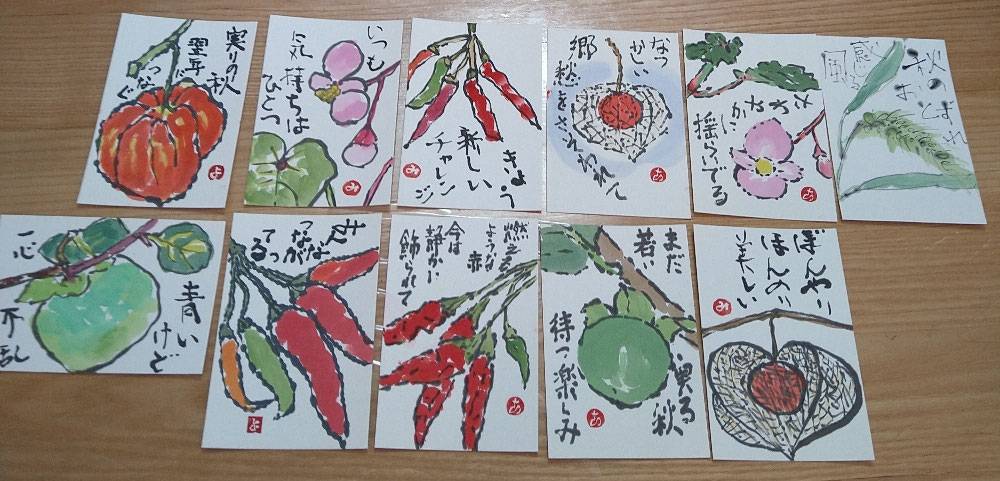 実りの秋
翌年に
つなぐ
よ
いつも
気持ちは
ひとつ
み
きょう
新しい
チャレンジ
なつ
かしい
郷愁を
さわ
やかに
揺らいでる
秋のおとずれ
感じる
風
青い
けど
一心不乱
みんな
つながっ
てる
よ
燃える
ような
赤
今は
静かに
飾られて
まだ
若い
実る秋
待つ楽しみ
ぼんやり
ほんのり
美しい
み